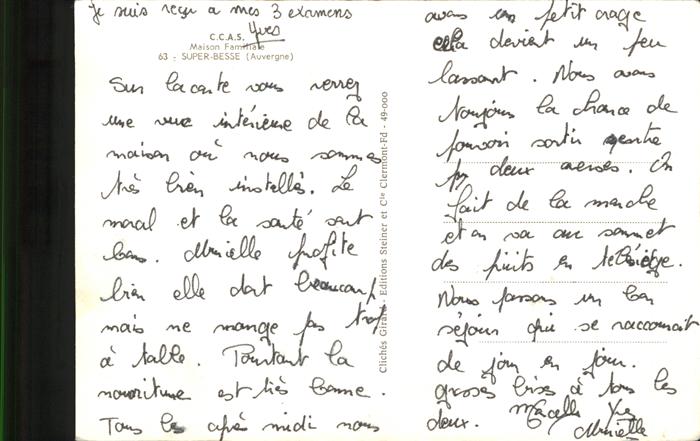 Je suis reçu a mes 3 examens
Yves
C.C.A.S.
Maison Familiale
63 : SUPER-BESSE (Auvergne)
Sur la carte vous verrez
une vue intérieure de la
maison où nous sommes
très bien installés. Le
moral et la santé sont
bons. Murielle profite
bien elle dort beaucoup
mais ne mange pas trop
à table. Pourtant la
nourriture est très bonne.
Tous les après midi nous
Clichés Girard - Editions Steiner et Cie Clermont-Fd - 49-000
avons un petit orage
cela devient un peu
lassant. Nous avons
toujours la chance de
pouvoir sortir entre
deux averses. On
fait de la marche
et on va au sommet
des puits en télésiège.
Nous passons un bon
séjour qui se raccourcit
de jour en jour.
groses bises à tous les
deux. Marcelle Yves
Murielle